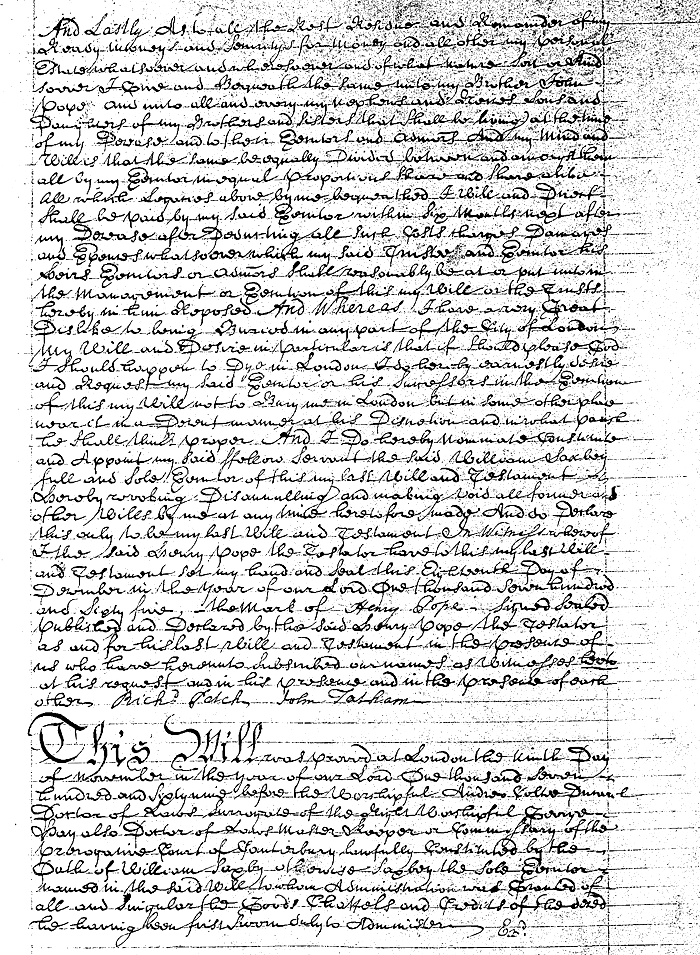 And Lastly As to all the Rest Residue and Remainder of my
Ready money and Securitys for Money and all other my personal
Estate whatsoever and wheresoever and of what nature sort or kind
soever I Give and Bequeath the same unto my Brother John
Pope and unto all and every my nephews and Neices Sons and
Daughters of my Brothers and Sisters that shall be living at the time
of my Decease and to their Exectors and Admors And my Mind and
Will is that the same be equally Divided between and amongst them
all by my Exector in equal proportions share and share alike
All which Legacies above by me bequeathed I Will and Direct
shall be paid by my said Exector within Six Months next after
my Decease after Deducting all such Costs Charges Damages
and Expences whatsoever which my said Trustee and Exector his
Heirs Exectors or Admors shall reasonably be at or put unto in
the Management or Exection of this my Will or the Trusts
hereby in him Reposed And Whereas I have a very Great
Dislike to being Buried in any part of the City of London
My Will and Desire in particular is that if it should please God
I should happen to Dye in London I do hereby earnestly desire
and Request my said Exector or his Successors in the Exection
of this my Will not to Bury me in London but in some other place
near it in a Decent manner at his Discretion and in what parish
he shall think proper And I Do hereby Nominate Constitute
and Appoint my said ffellow Servant the said William Saxbey
full and Sole Exector of this my last Will and Testament
hereby revoking Disannulling and making void all former and
other Wills by me at any time heretofore made And do Declare
this only to be my last Will and Testament In Witness whereof
I the said Henry Pope the Testator have to this my last Will
and Testament set my hand and seal this Eighteenth Day of
December in the Year of our Lord One thousand Seven hundred
and Sixty five . the Mark of Henry Pope - Signed Sealed
Published and Declared by the said Henry Pope the Testator
as and for his last Will and Testament in the presence of
us who have hereunto subscribed our names as Witnesses hereto
at his request and in his presence and in the presence of each
other Richd Petch John Tatham
This Will was proved at London the Ninth Day
of November in the Year of our Lord One thousand Seven
hundred and Sixty nine before the Worshipful Andrew Coltee Ducarel
Doctor of Laws Surrogate of the Right Worshipful George
Hay also Doctor of Laws Master Keeper or Commissary of the
Prerogative Court of Canterbury lawfully Constituted by the
Oath of William Saxby otherwise Saxbey the Sole Exector
named in the said Will to whom Administration was Granted of
all and singular the Goods Chattels and Credits of the deced
he having been first sworn duly to Administer Exd